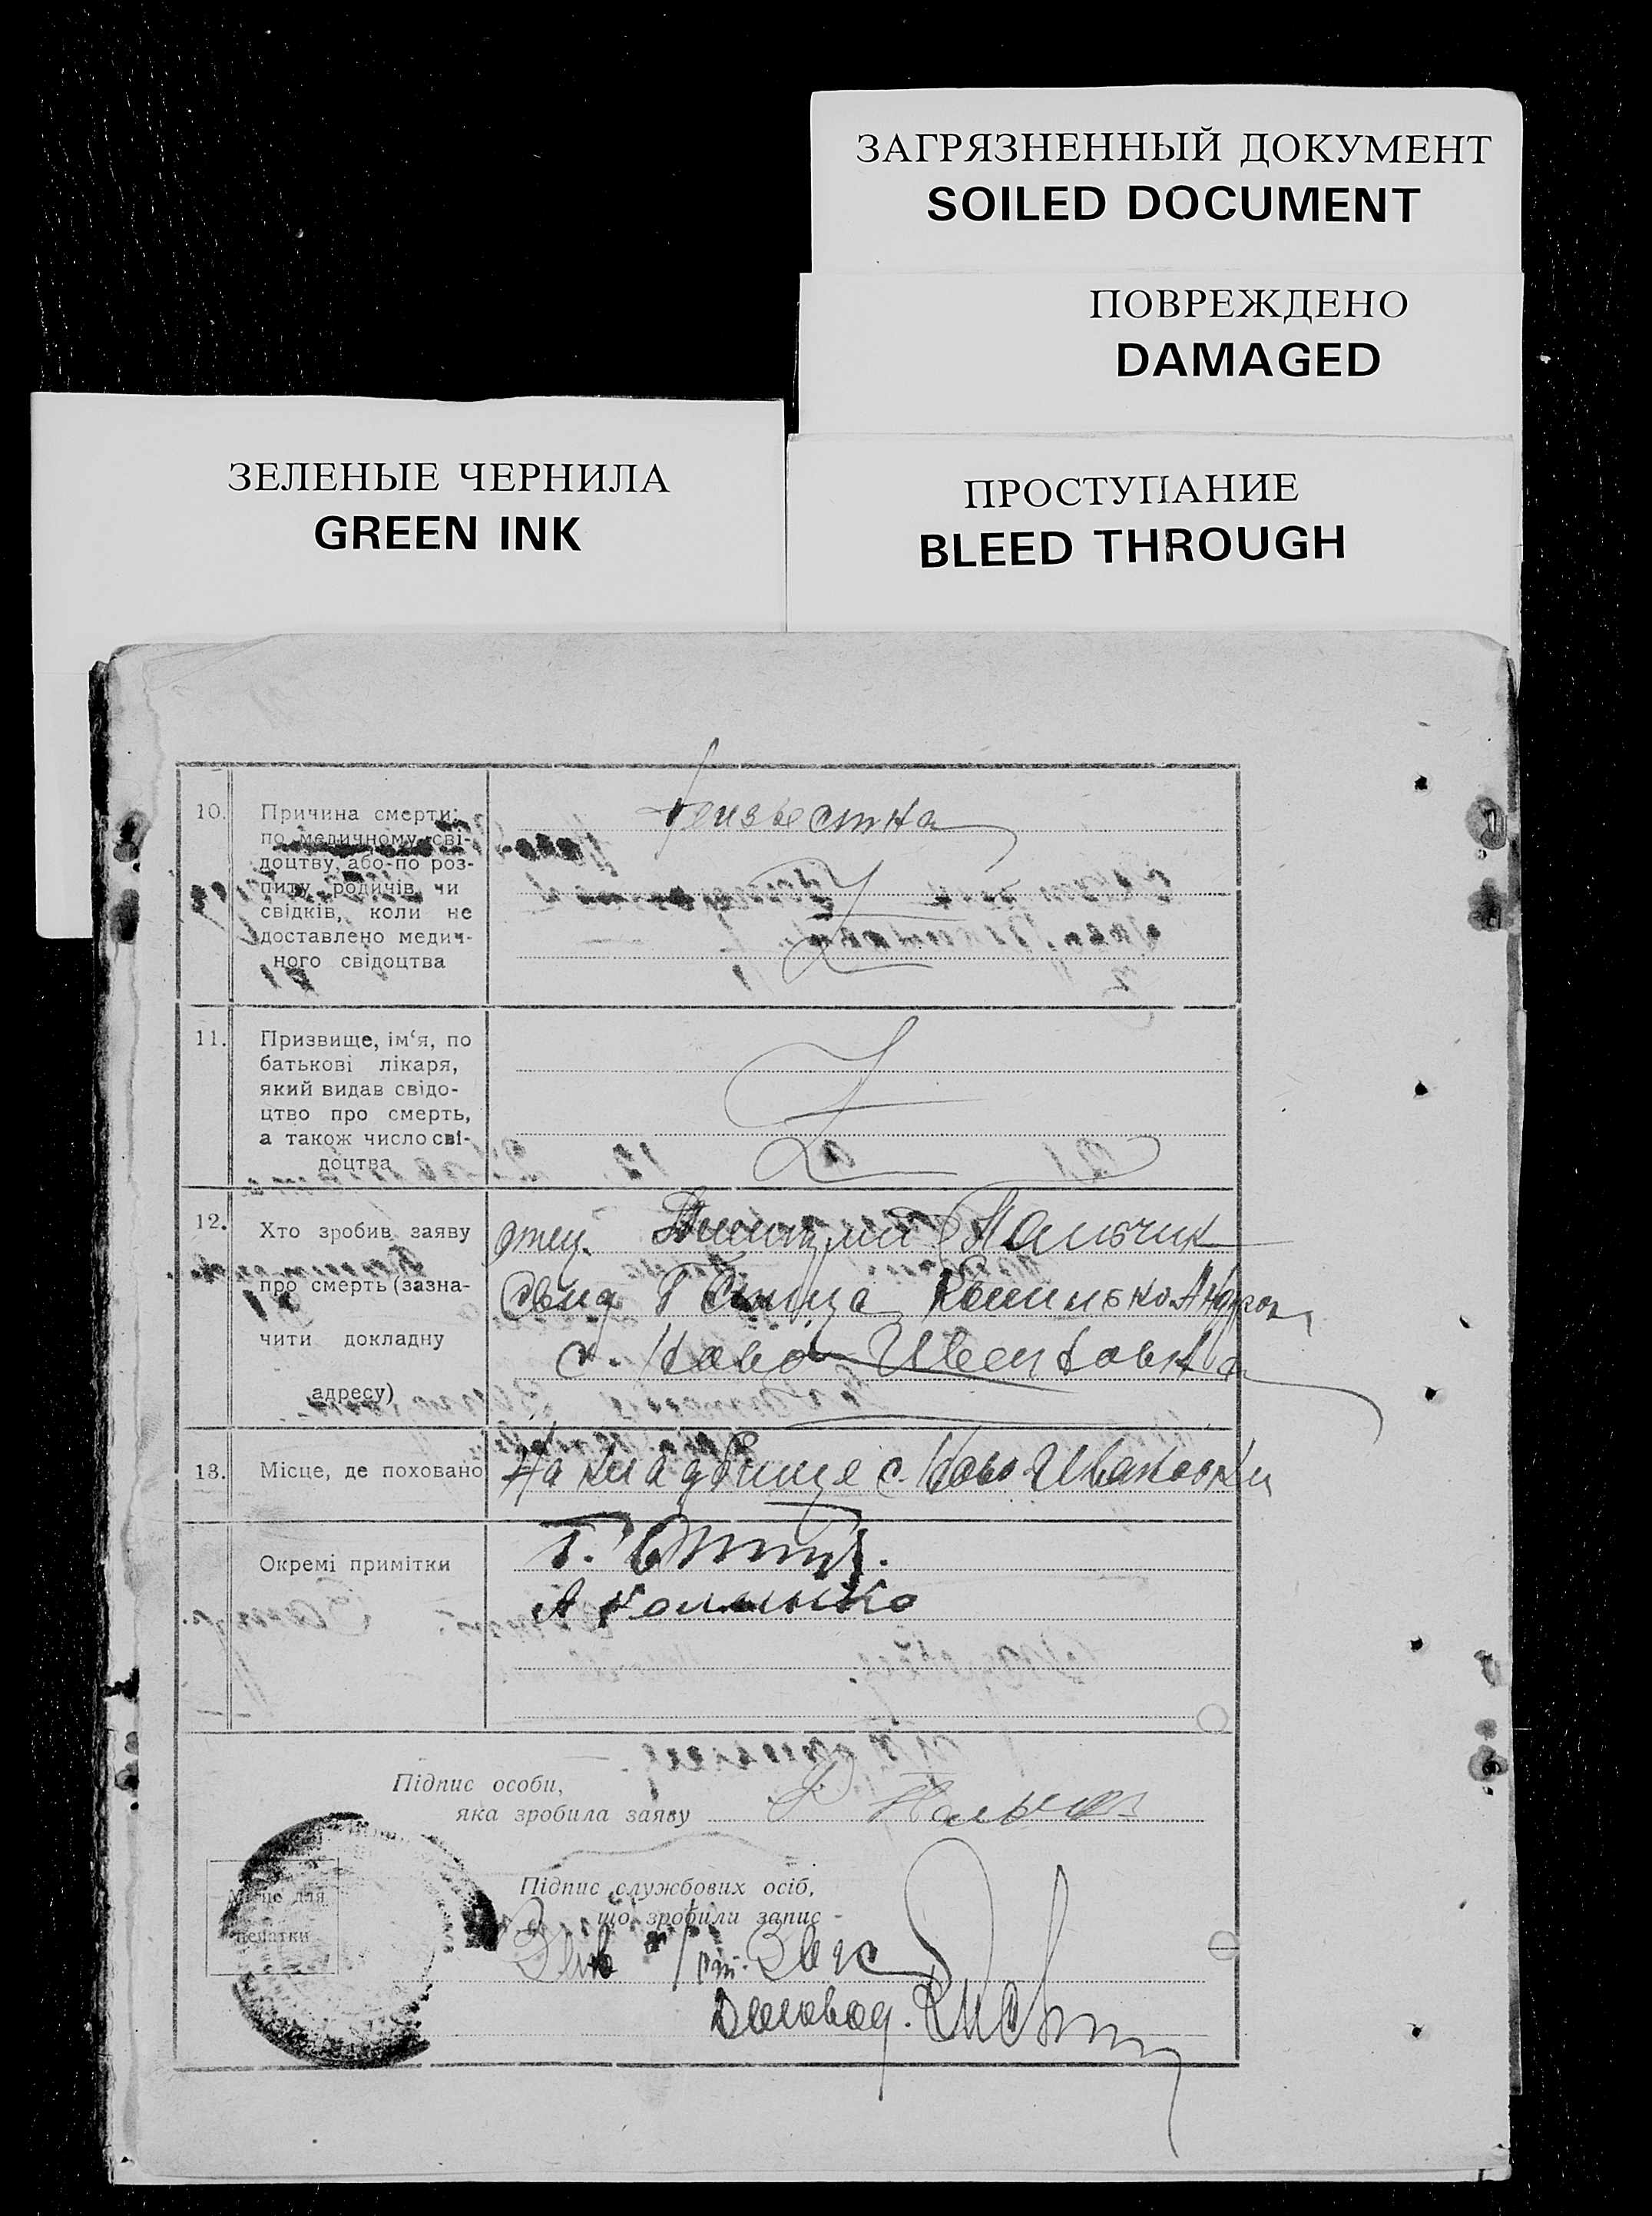 ЗАГРЯЗНЕННЫЙ ДОКУМЕНТ
SOILED DOCUMENT
ПОВРЕЖДЕНО
DAMAGED
ЗЕЛЕНЫЕ ЧЕРНИЛА
GREEN INK
ПРОСТУПАНИЕ
BLEED THROUGH
10.
Причина смерти:
по медичному сві-
доцтву, або по роз-
питу родичів чи
свідків, коли не
доставлено медич-
ного свідоцтва
Неизвестна
11.
Призвище, ім‘я, по
батькові лікаря,
який видав свідо-
цтво про смерть,
а також число сві-
доцтва
12.
Хто зробив заяву
про смерть (зазна-
чити докладну
адресу)
отец. Пальчик
Свид
с. Ново
13.
Місце, де поховано
На кладбище с. Ново Ивановки
Окремі примітки
Підпис особи,
яка зробила заяву
Місце для
печатки
Підпис службових осіб,
що зробили запис
Деловод.